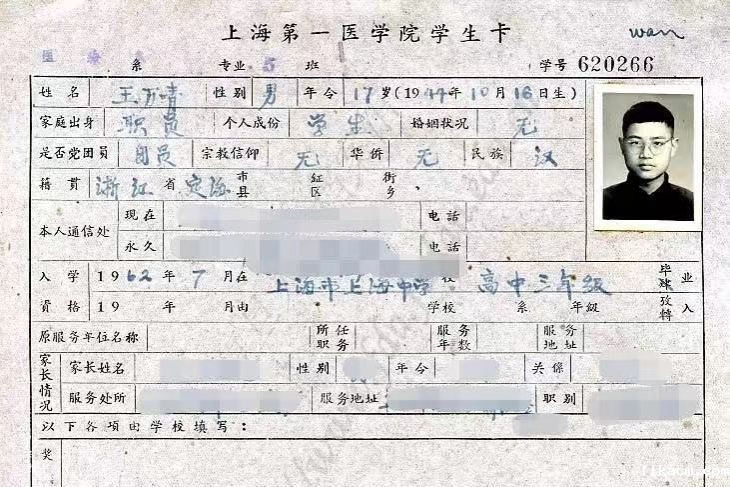 上海第一医学院学生卡 wan
医疗系 专业 5 班 学号 620266
姓名 王万青 性别 男 年令 17岁(1944年10月16日生)
家庭出身 职员 个人成份 学生 婚姻状况 无
是否党团员 团员 宗教信仰 无 华侨 无 民族 汉
籍贯 浙江省 定海 市县 区 街乡
本人通信处 现在 电话
永久 电话
入学资格 1962年7月在 上海市上海中学校 高中三年级 毕肄业
19 年 月由 学校 系 年级 考特入
原服务单位名称 所任职务 服务年数 服务地址
家长情况 家长姓名 性别 年令 关系
服务处所 服务地址 职别
以下各项由学校填写:
奖